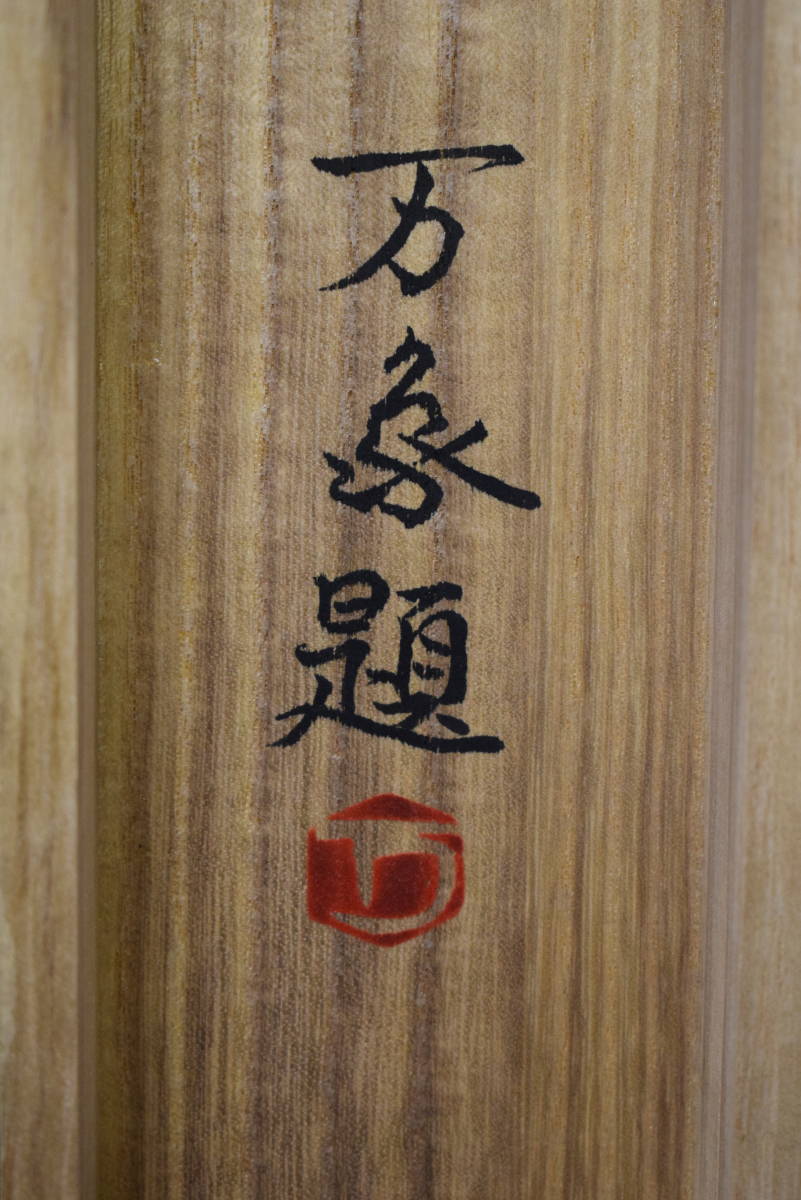 万象題